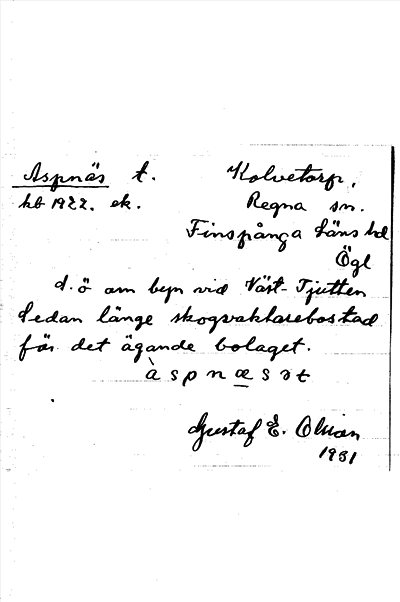 Aspnäs t. Kolvetorp,
kb 1922. ek. Regna sn.
Finspånga läns hd
Ögl
d. ö om byn vid Väst-Tjutten
Sedan länge skogvaktarebostad
för det ägande bolaget.
àspnæsət
Gustaf E. Olsson
1931